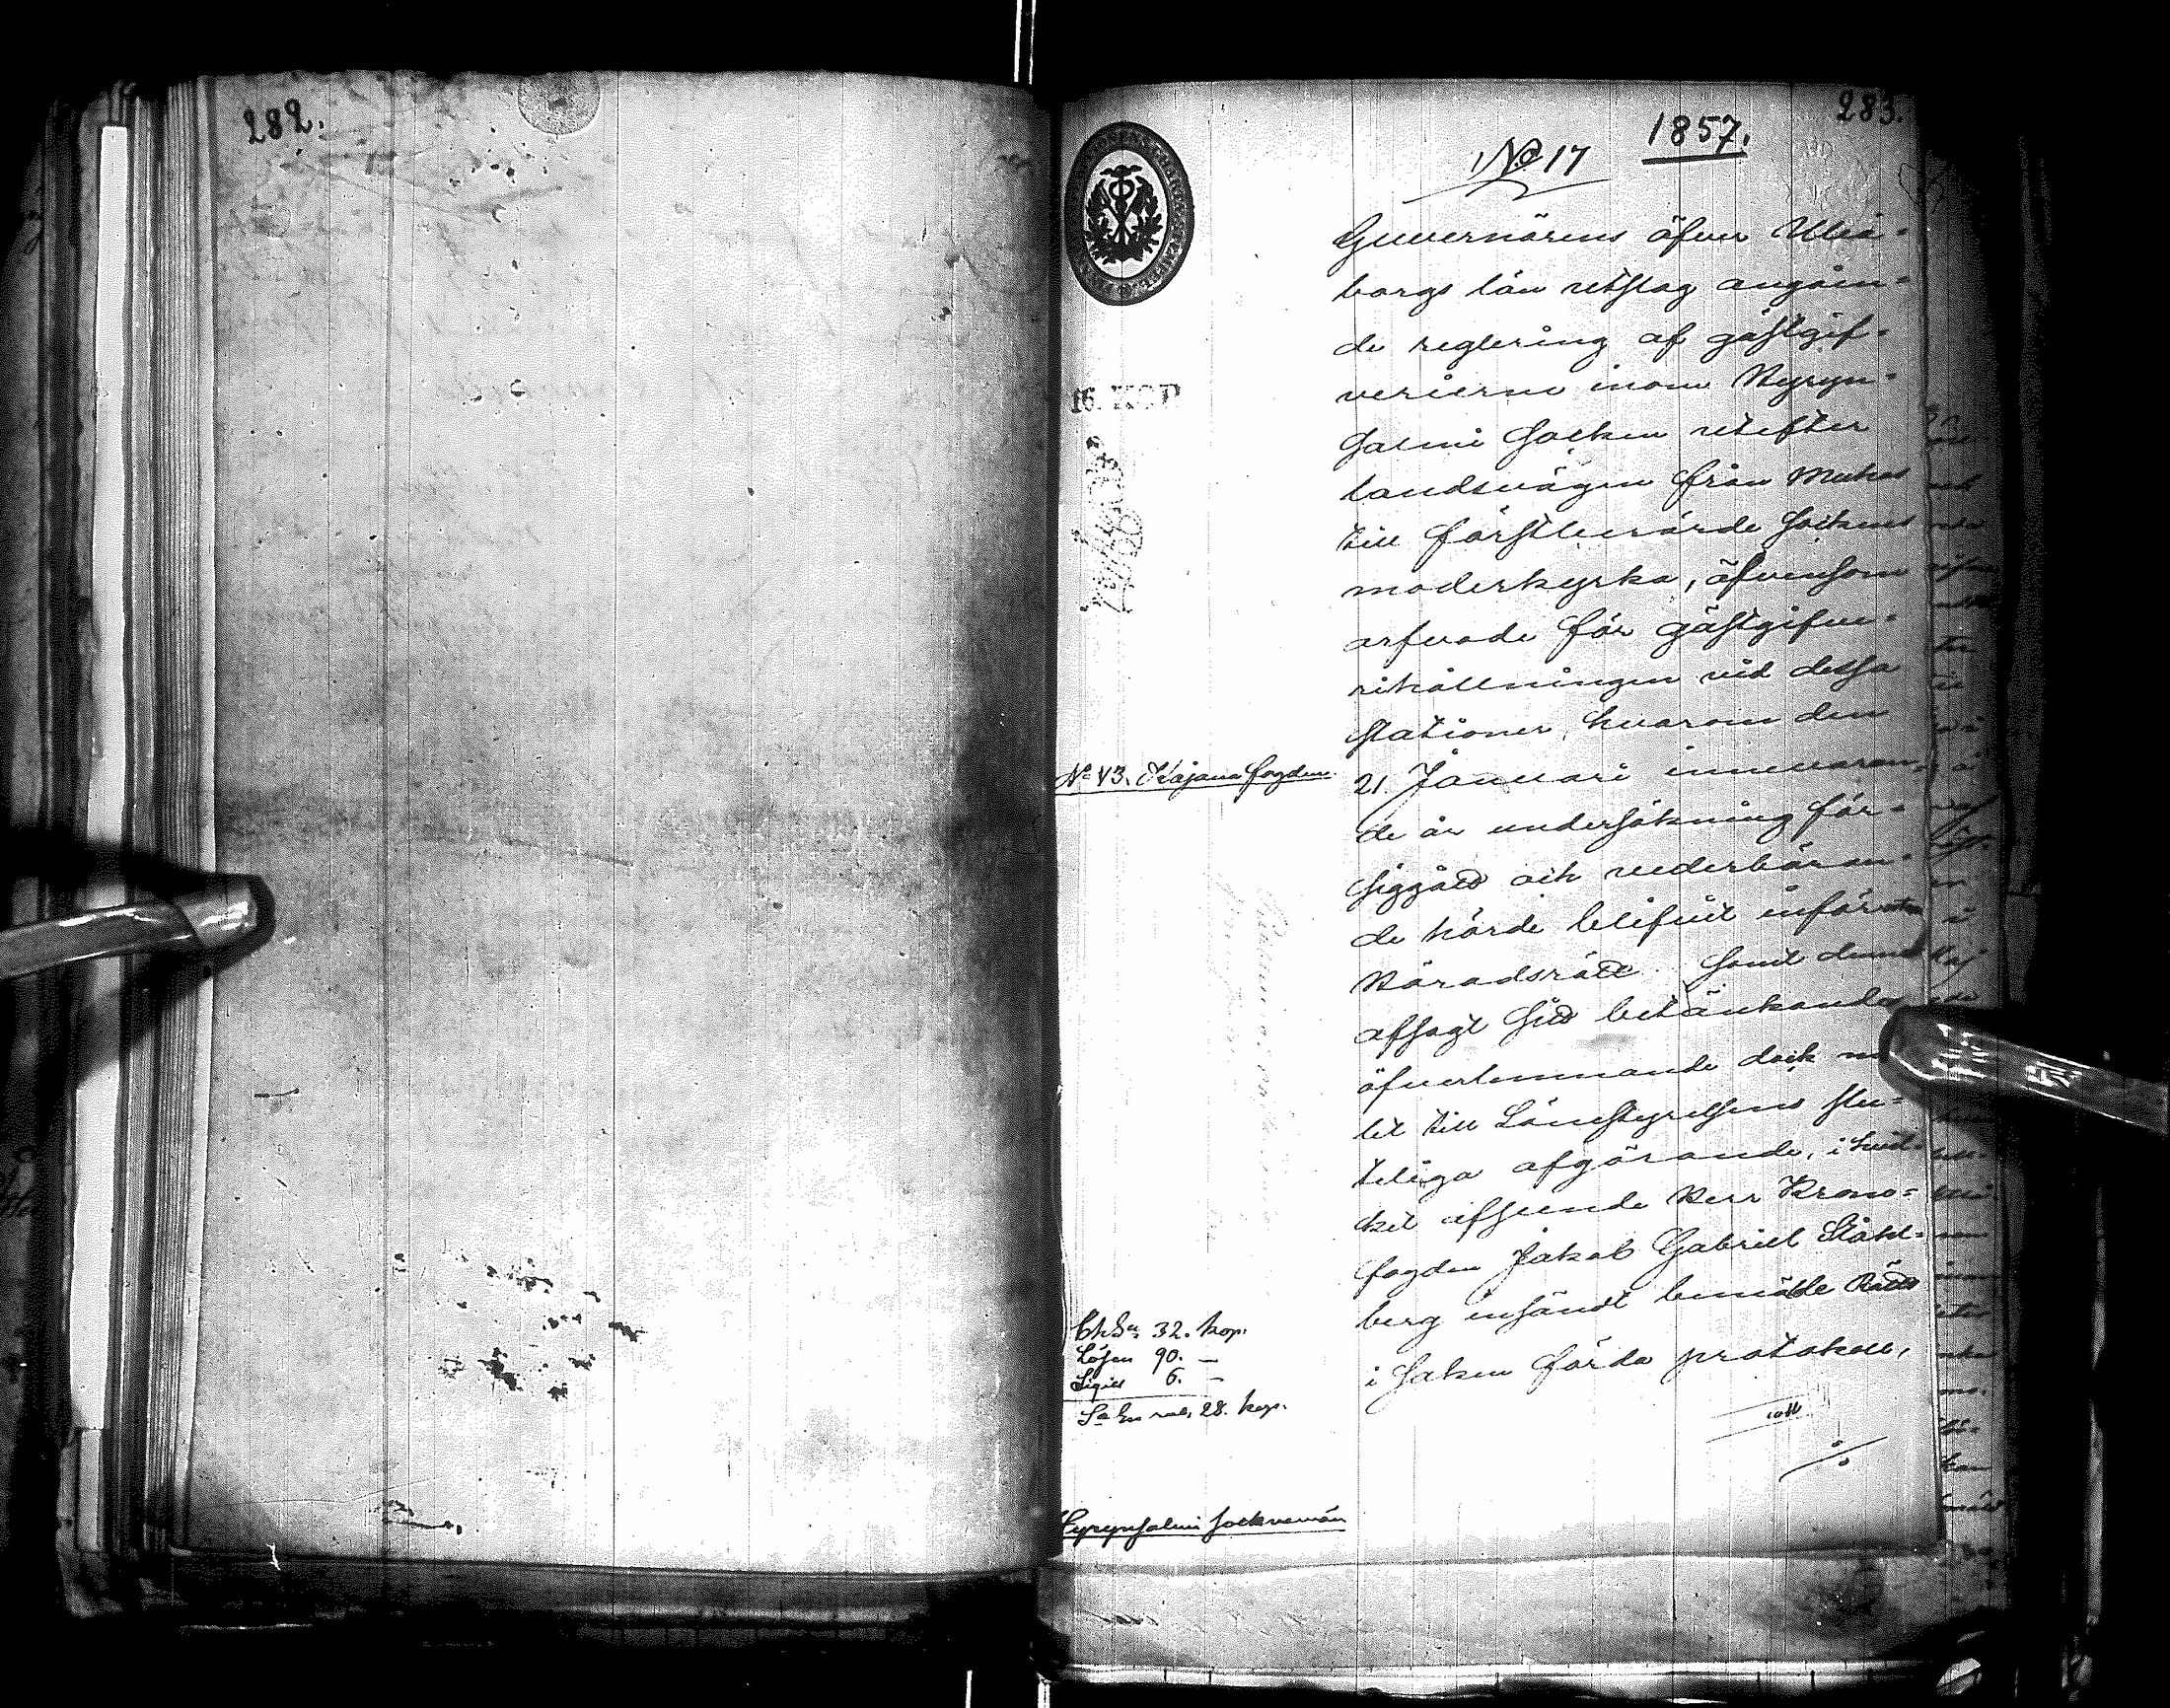 282.
283.
1857.
No 17
Guvernörens öfver Uleå-
borgs län utslag angåen-
de reglering af gästgif-
verierne inom Hyryn-
salmi Socken utefter
landsvägen från Muhos
till förstberörde Sockens
moderkyrka, äfvensom
arfvode för gästgifve-
rihållningen vid dessa
stationer, hvarom den
21 Januari innevaran-
de år undersökning för-
siggått och vederböran-
de hörde blifvit inför
Häradsrätt. Samt
afsagt sitt betänkande
öfverlemnande dock
let till Länestyrelsens slu-
teliga afgörande, i hvil-
ket afseende Herr Krono-
fogden Jakob Gabriel Ståhl-
berg insändt bemälde Rätts
i saken förda protokoll,
16. KOP
No 43. Kajana fogden
Ch.Sa 32. kop.
Lösen 90. —
Sigill 6. —
Sa En rub. 28. kop.
Hyrynsalmi Socknemän